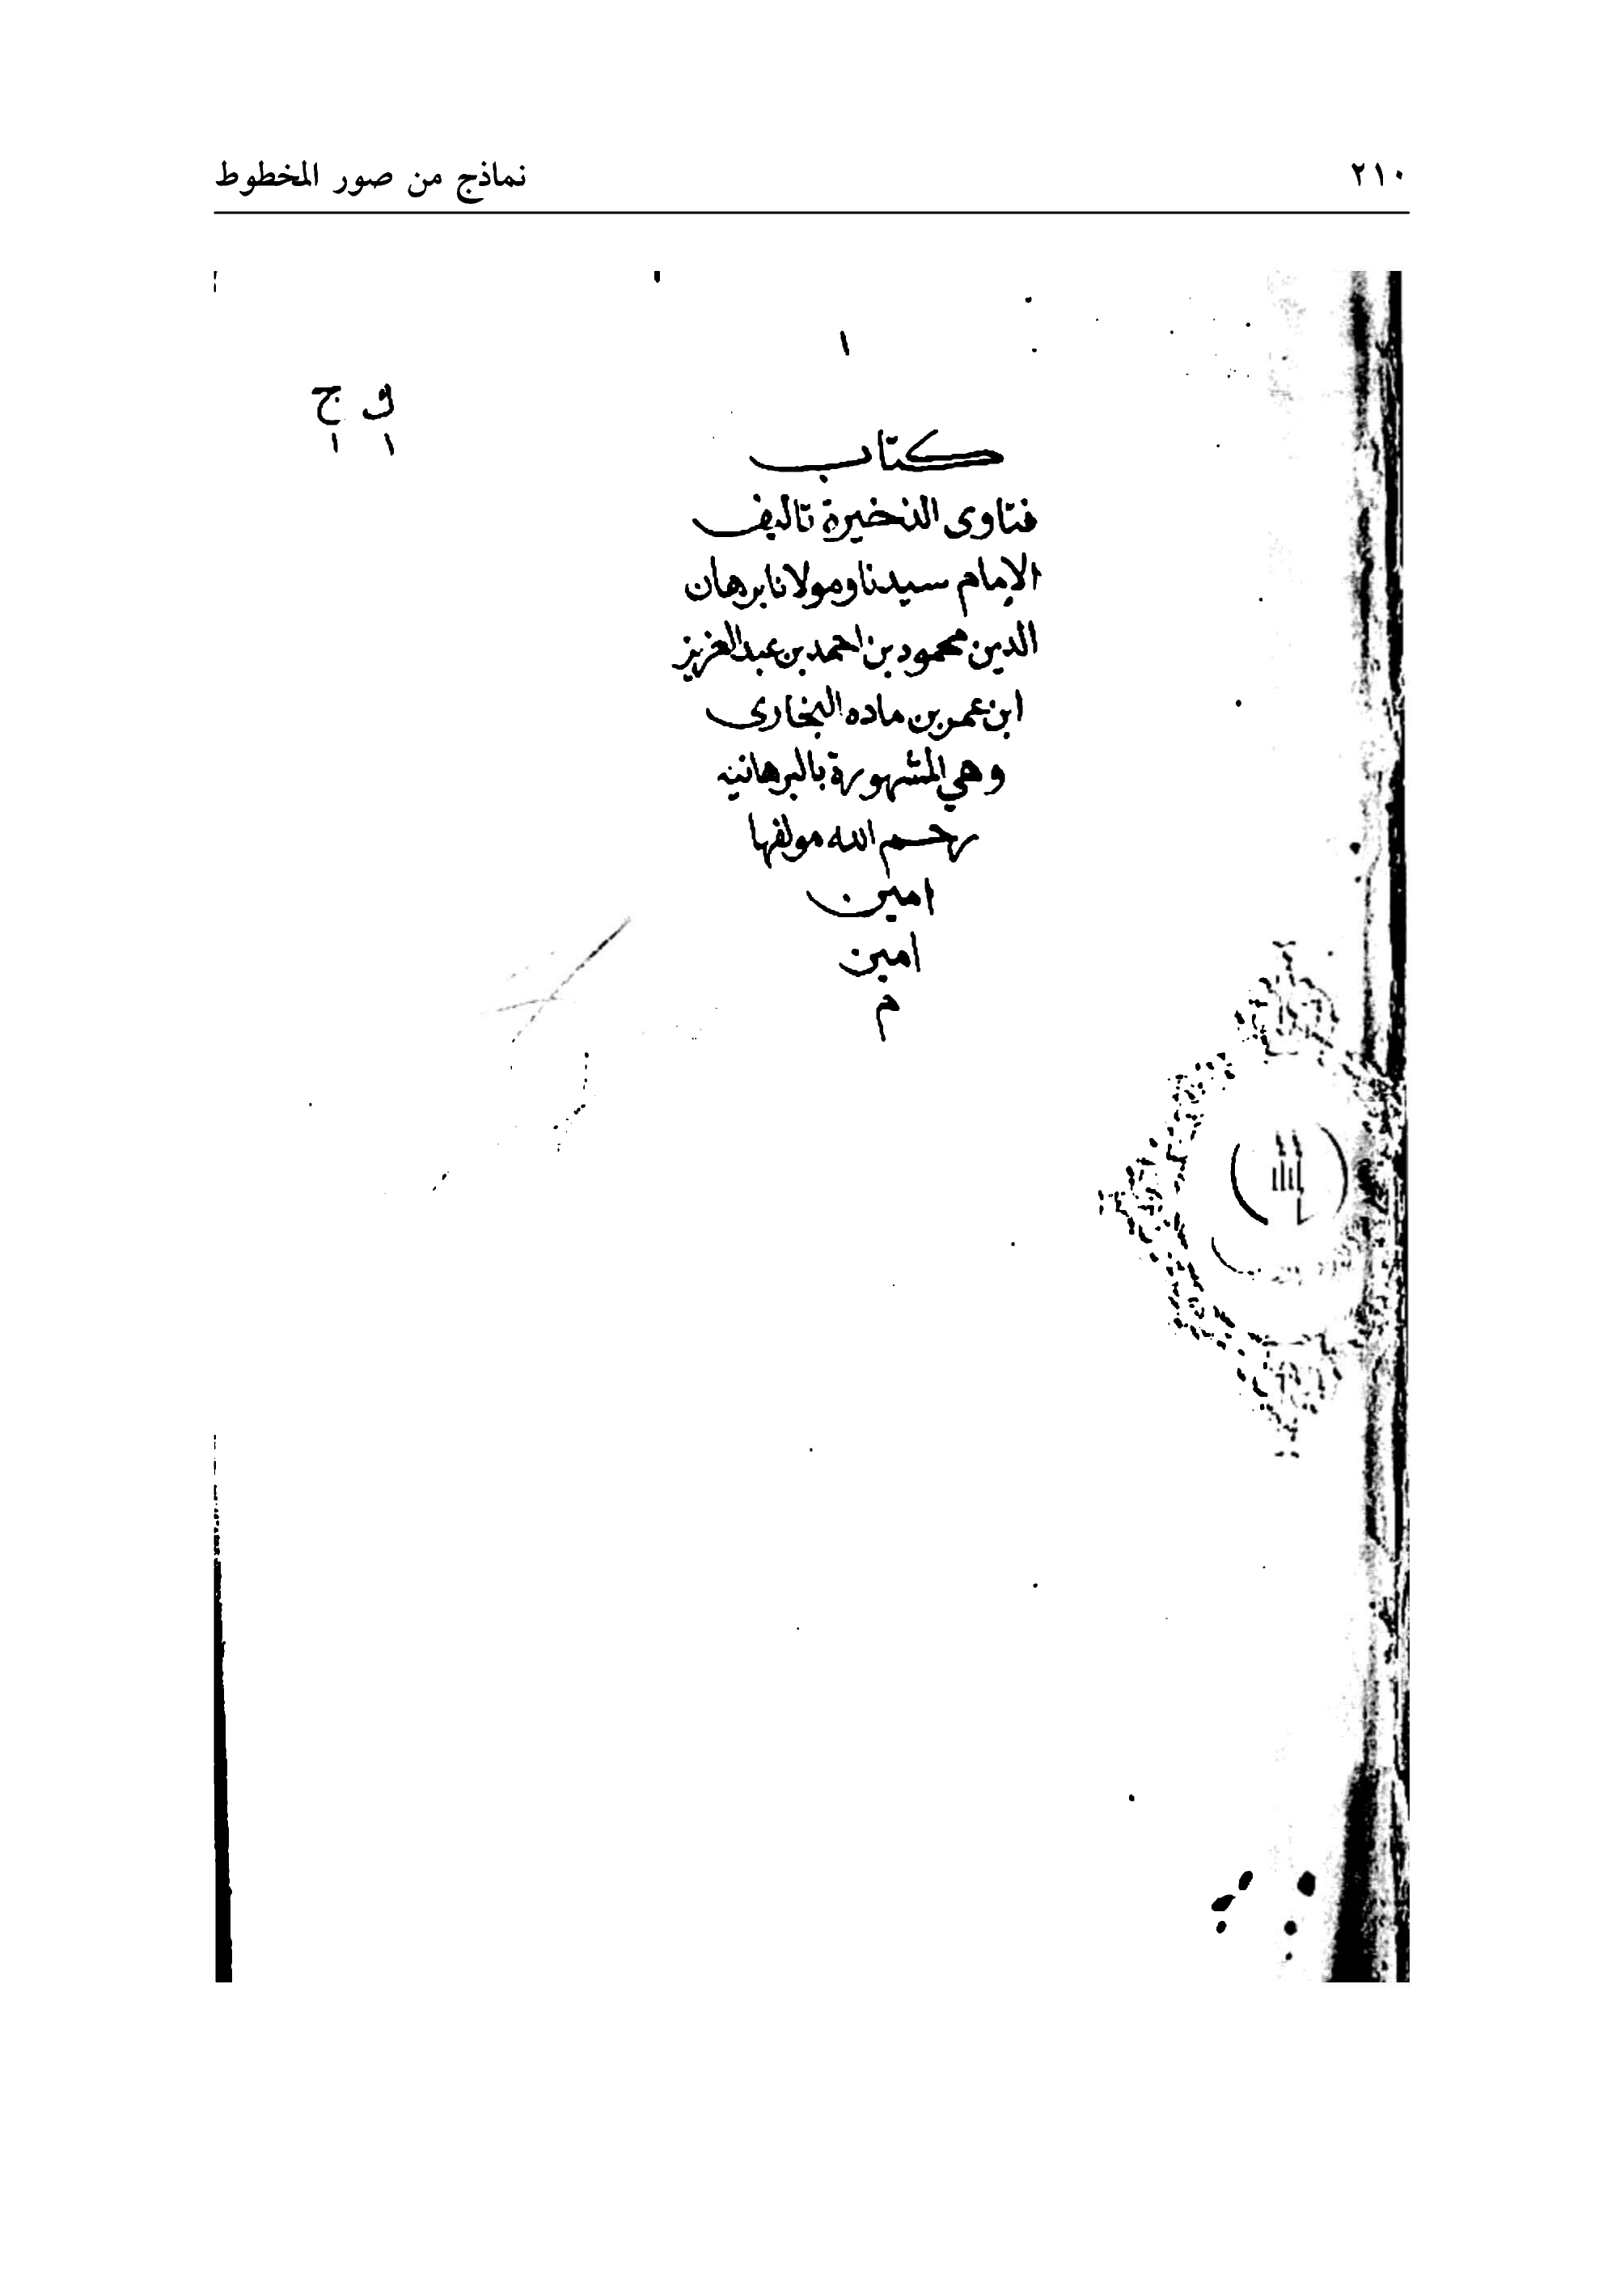 ٢١٠ نماذج من صور المخطوط
١
و ج
١ ١
كتاب
فتاوى الذخيرة تاليف
الإمام سيدنا ومولانا برهان
الدين محمود بن احمد بن عبد العزيز
ابن عمر بن ماده البخارى
وهي المشهورة بالبرهانيه
رحم الله مولفها
امين
امين
م